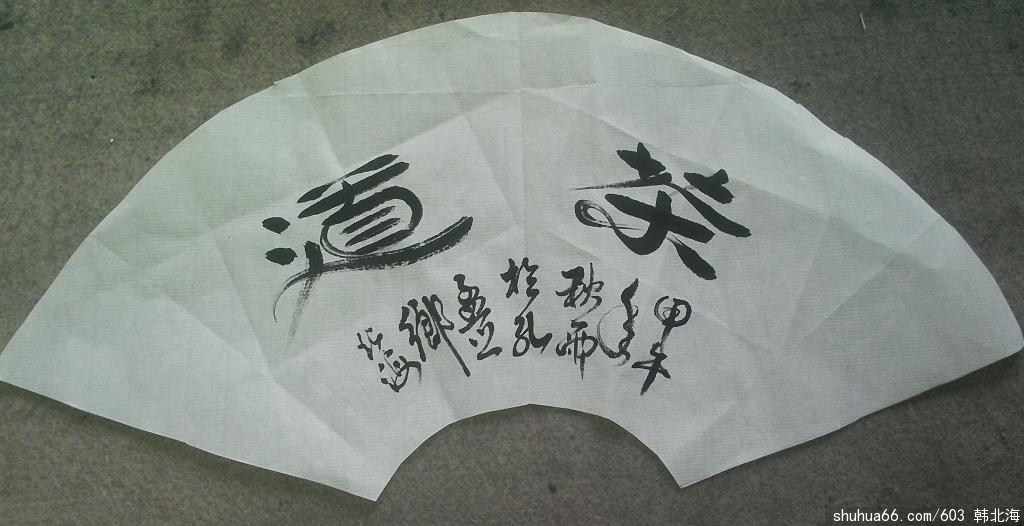 茶道
甲午
年
秋雨
於孔
孟之
鄉
北海
shuhua66.com/603 韩北海